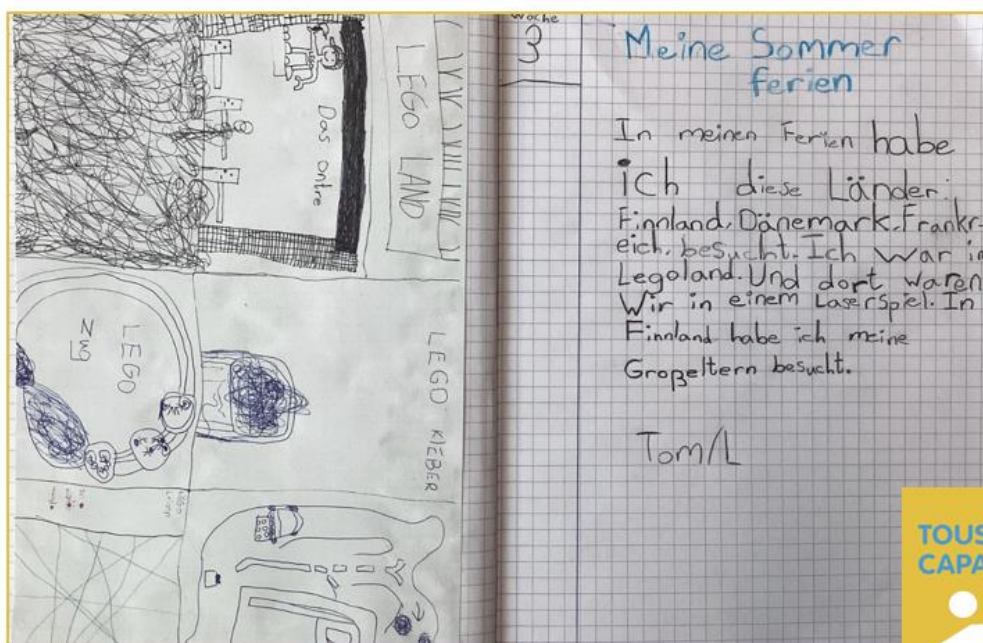 LEGO LAND
Das ontre
LEGO
Zug
LEGO KlEBER
Woche
3
Meine Sommer
ferien
In meinen Ferien habe
ich diese Länder:
Finnland, Dänemark, Frankr-
eich, besucht. Ich war in
Legoland. Und dort waren
Wir in einem Laserspiel. In
Finnland habe ich meine
Großeltern besucht.
Tom/L
TOUS
CAPA